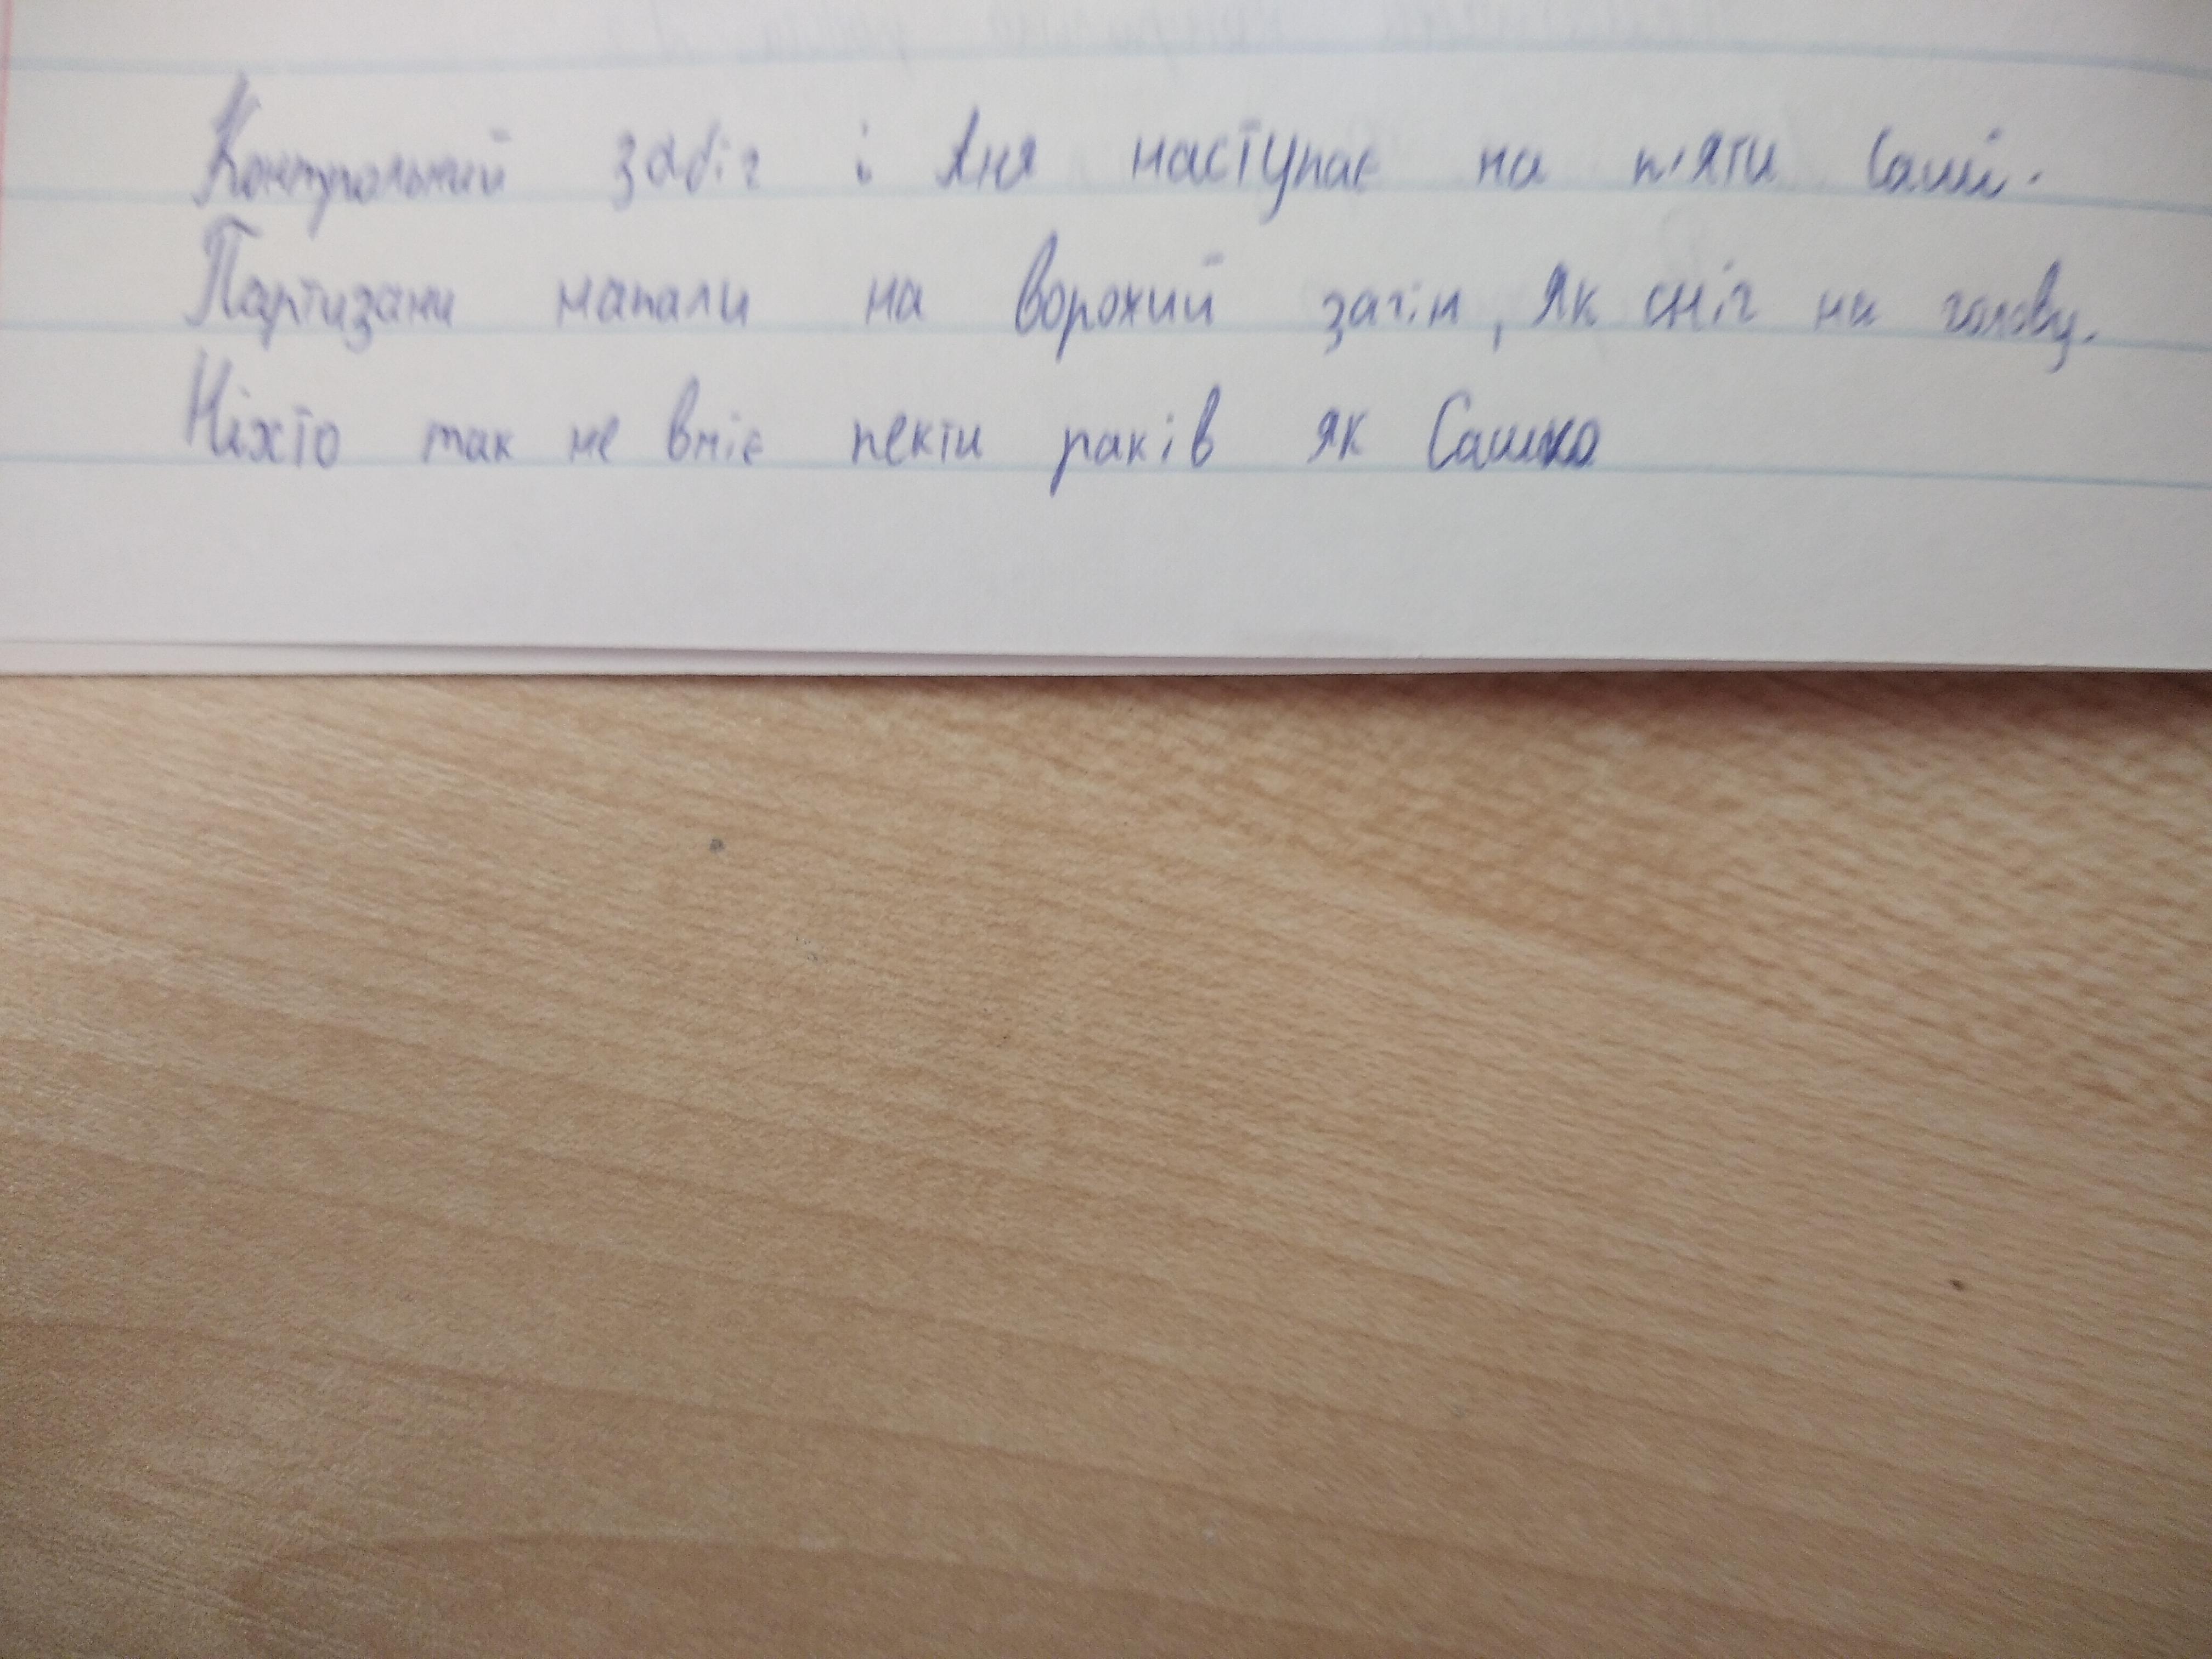 Контрольний забіг і Аня наступає на п'яти Саші.
Партизани напали на ворожий загін, як сніг на голову.
Ніхто так не вміє пекти раків як Сашко